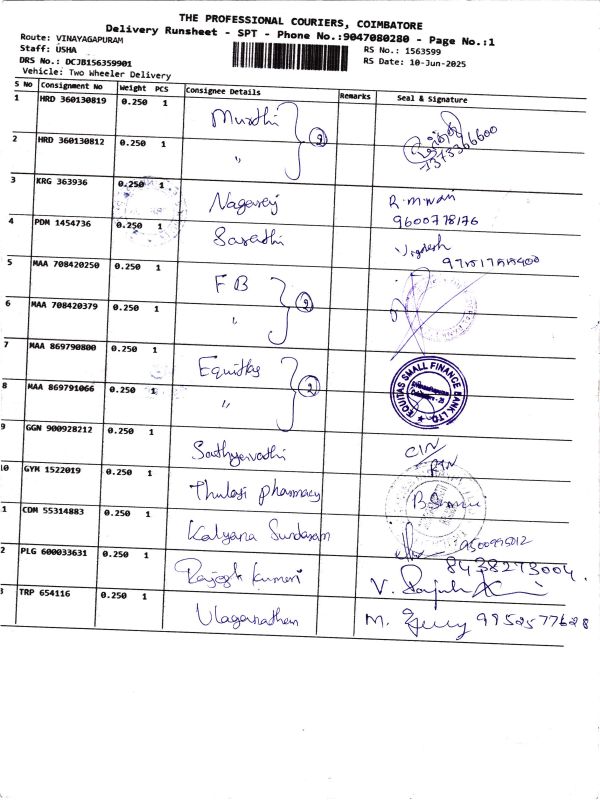 THE PROFESSIONAL COURIERS, COIMBATORE
Delivery Runsheet - SPT - Phone No.:9047080280 - Page No.:1
Route: VINAYAGAPURAM
Staff: USHA
RS No.: 1563599
DRS No.: DCJB156359901
RS Date: 10-Jun-2025
Vehicle: Two Wheeler Delivery
S No Consignment No Weight PCS Consignee Details Remarks Seal & Signature
1 HRD 360130819 0.250 1 Murthi 2
2 HRD 360130812 0.250 1 "
3 KRG 363936 0.250 1 Nagaraj R.m.wari
9600778176
4 PDM 1454736 0.250 1 Sarathi
5 MAA 708420250 0.250 1 FB 2
6 MAA 708420379 0.250 1 "
7 MAA 869790800 0.250 1 Equitas 2 EQUITAS SMALL FINANCE BANK LTD.
8 MAA 869791066 0.250 1 "
9 GGN 900928212 0.250 1 Sathyavathi
10 GYM 1522019 0.250 1 Thulasi pharmacy
1 CDM 55314883 0.250 1 Kalyana Sundaram 9500995012
2 PLG 600033631 0.250 1 Rajesh Kumari 8438273004.
3 TRP 654116 0.250 1 Ulaganathan M. 9952577628